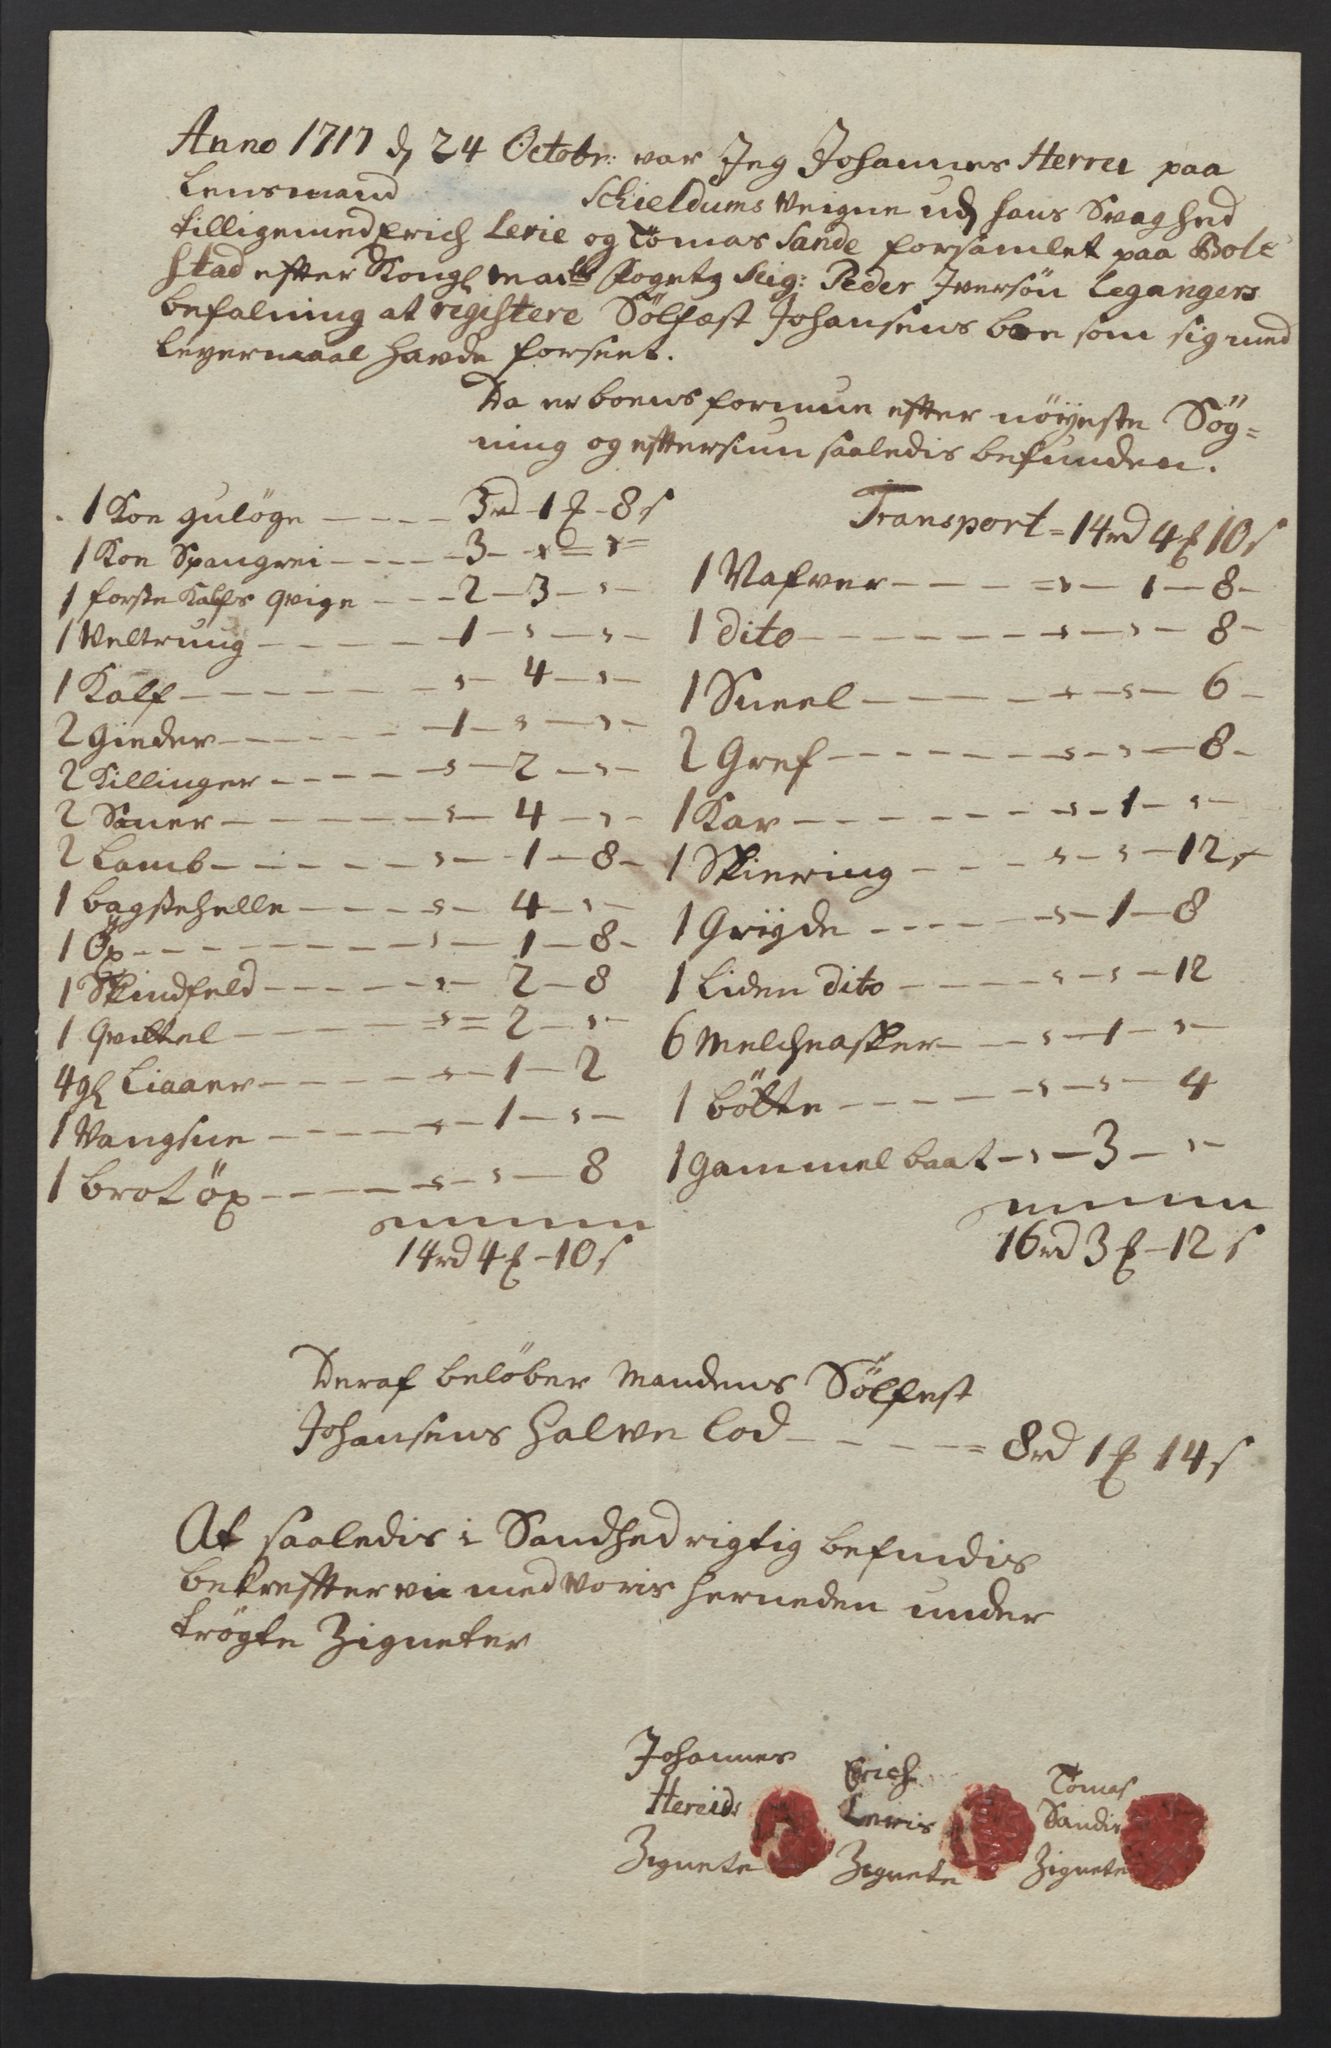 Anno 1717 d 24 Octobr: var Jeg Johannes Herrei paa
Lensmand Schieldums Veigne udj hans Svaghed
tilligemed Erich Lerie og Tomas Sande forsamlet paa Bole
stad efter Kongl Maits fogets Seig: Peder Jversøn Legangers
befalning at registere Sölfæst Johansens boe som sig med
Leyermaal havde forseet.
Da er boens formue efter nöyeste Sög=
ning og efftersiun saaledis befunden.
1 Koe guløge - - - - 3rd - 1 ƶ - 8 s
1 Koe Spangrei - - - - 3 - „ - „
1 forste Kalfs qvige - - - 2 - 3 - „
1 Veltrung - - - - - 1 - „ - „
1 Kalf - - - - - - „ - 4 - „
2 gieder - - - - - 1 - „ - „
2 Killinger - - - - - „ - 2 - „
2 Sauer - - - - - „ - 4 - „
2 Lamb - - - - - „ - 1 - 8
1 bagstehelle - - - - „ - 4 - „
1 Öx - - - - - - „ - 1 - 8
1 Skindfeld - - - - - „ - 2 - 8
1 qvittel - - - - - „ - 2 - „
4 gl Liaaer - - - - „ - 1 - 2
1 Vangsne - - - - „ - 1 - „
1 brot öx - - - - „ - „ - 8
14rd 4 ƶ - 10 s
Transport = 14rd 4 ƶ 10 s
1 Vafver - - - - „ - 1 - 8
1 dito - - - - - „ - „ - 8
1 Sneel - - - - - „ - „ - 6
2 Gref - - - - - „ - „ - 8
1 Kar - - - - - „ - 1 - „
1 Skiering - - - „ - „ - 12
1 Gryde - - - - „ - 1 - 8
1 Liden dito - - - - „ - „ - 12
6 Melcheasker - - „ - 1 - „
1 bötte - - - - „ - „ - 4
1 gammel baat - „ - 3 - „
16rd 3 ƶ - 12 s
Deraf belöber Mandens Sölfest
Johansens halve Lod - - - - = 8rd 1 ƶ 14 s
At saaledis i Sandhed rigtig befindis
bekreffter vii med voris herneden under
trögte Zigneter
Johannes
Hereids
Zignete
Erich
Leris
Zignete
Tomas
Sandis
Zignete